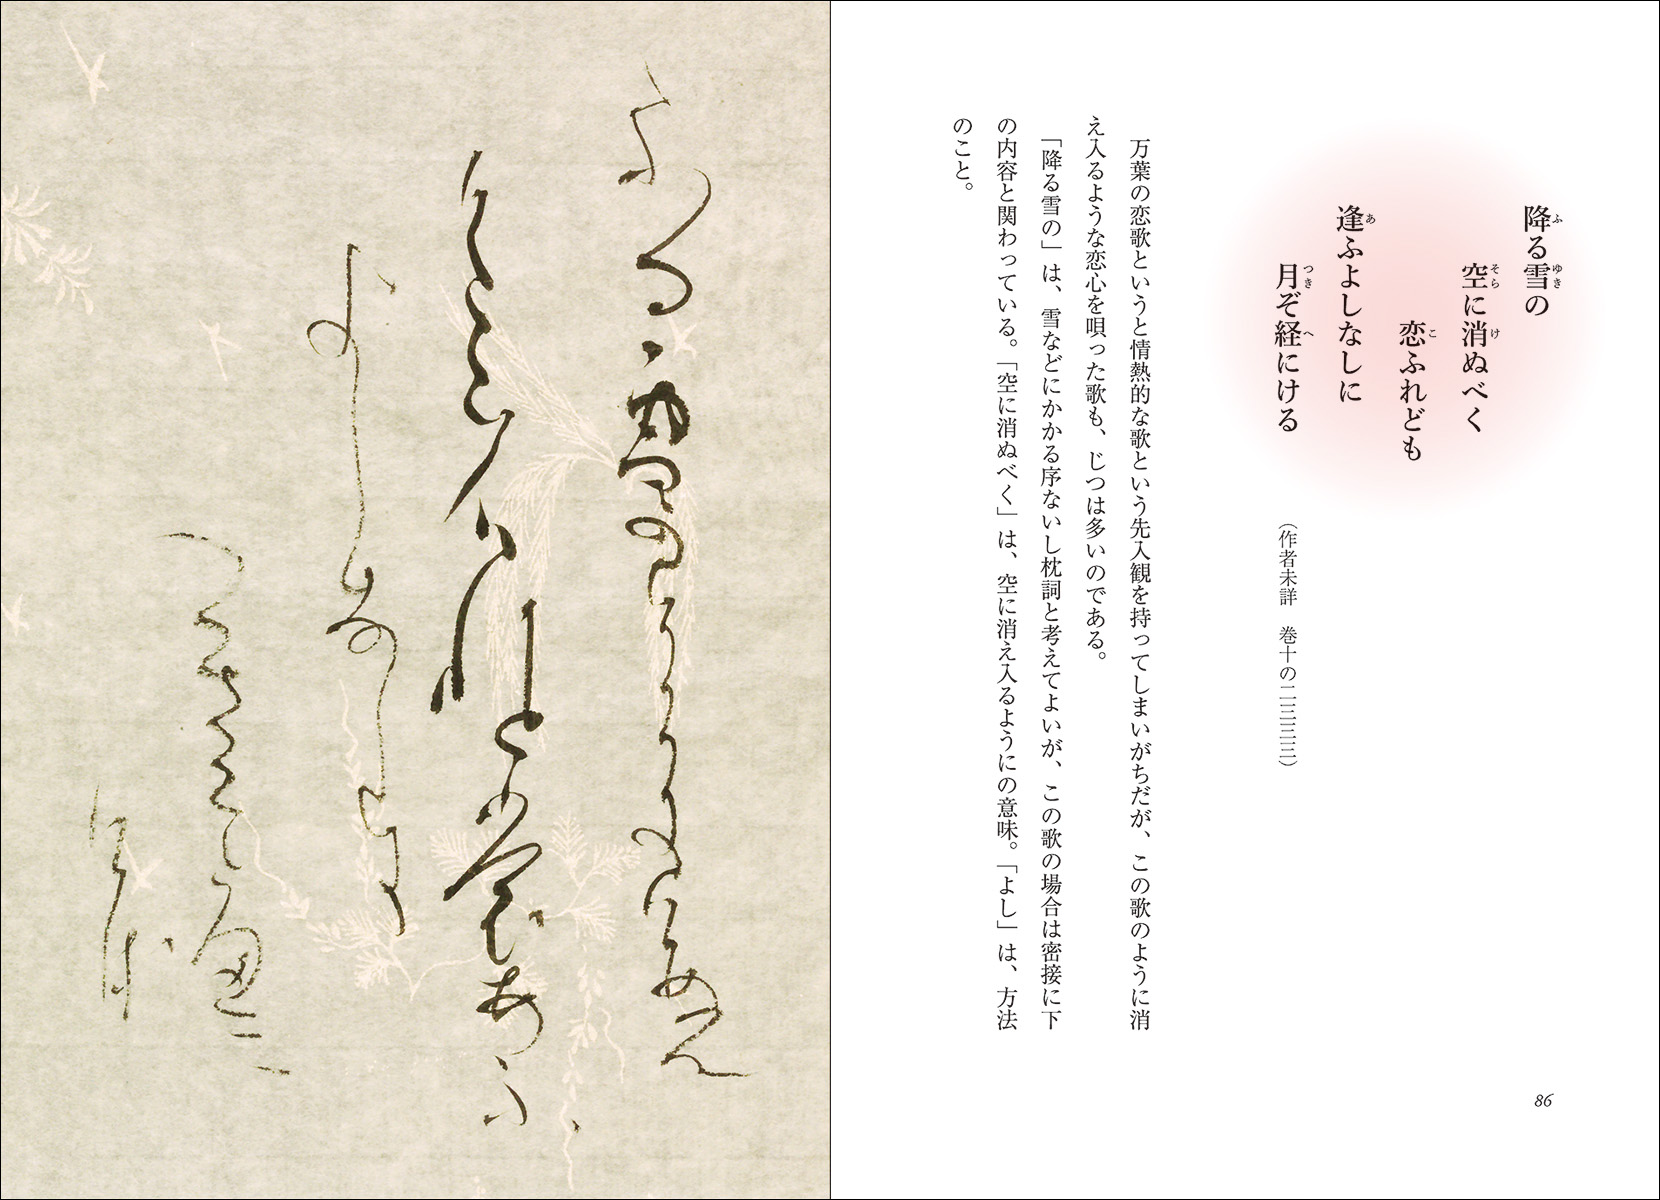 降る雪の
空に消ぬべく
恋ふれども
逢ふよしなしに
月ぞ経にける
（作者未詳　巻十の二三三三）
万葉の恋歌というと情熱的な歌という先入観を持ってしまいがちだが、この歌のように消
え入るような恋心を唄った歌も、じつは多いのである。
「降る雪の」は、雪などにかかる序ないし枕詞と考えてよいが、この歌の場合は密接に下
の内容と関わっている。「空に消ぬべく」は、空に消え入るようにの意味。「よし」は、方法
のこと。
86
ふる雪のそらにけぬへ
くこふれともあふ
よしなしに